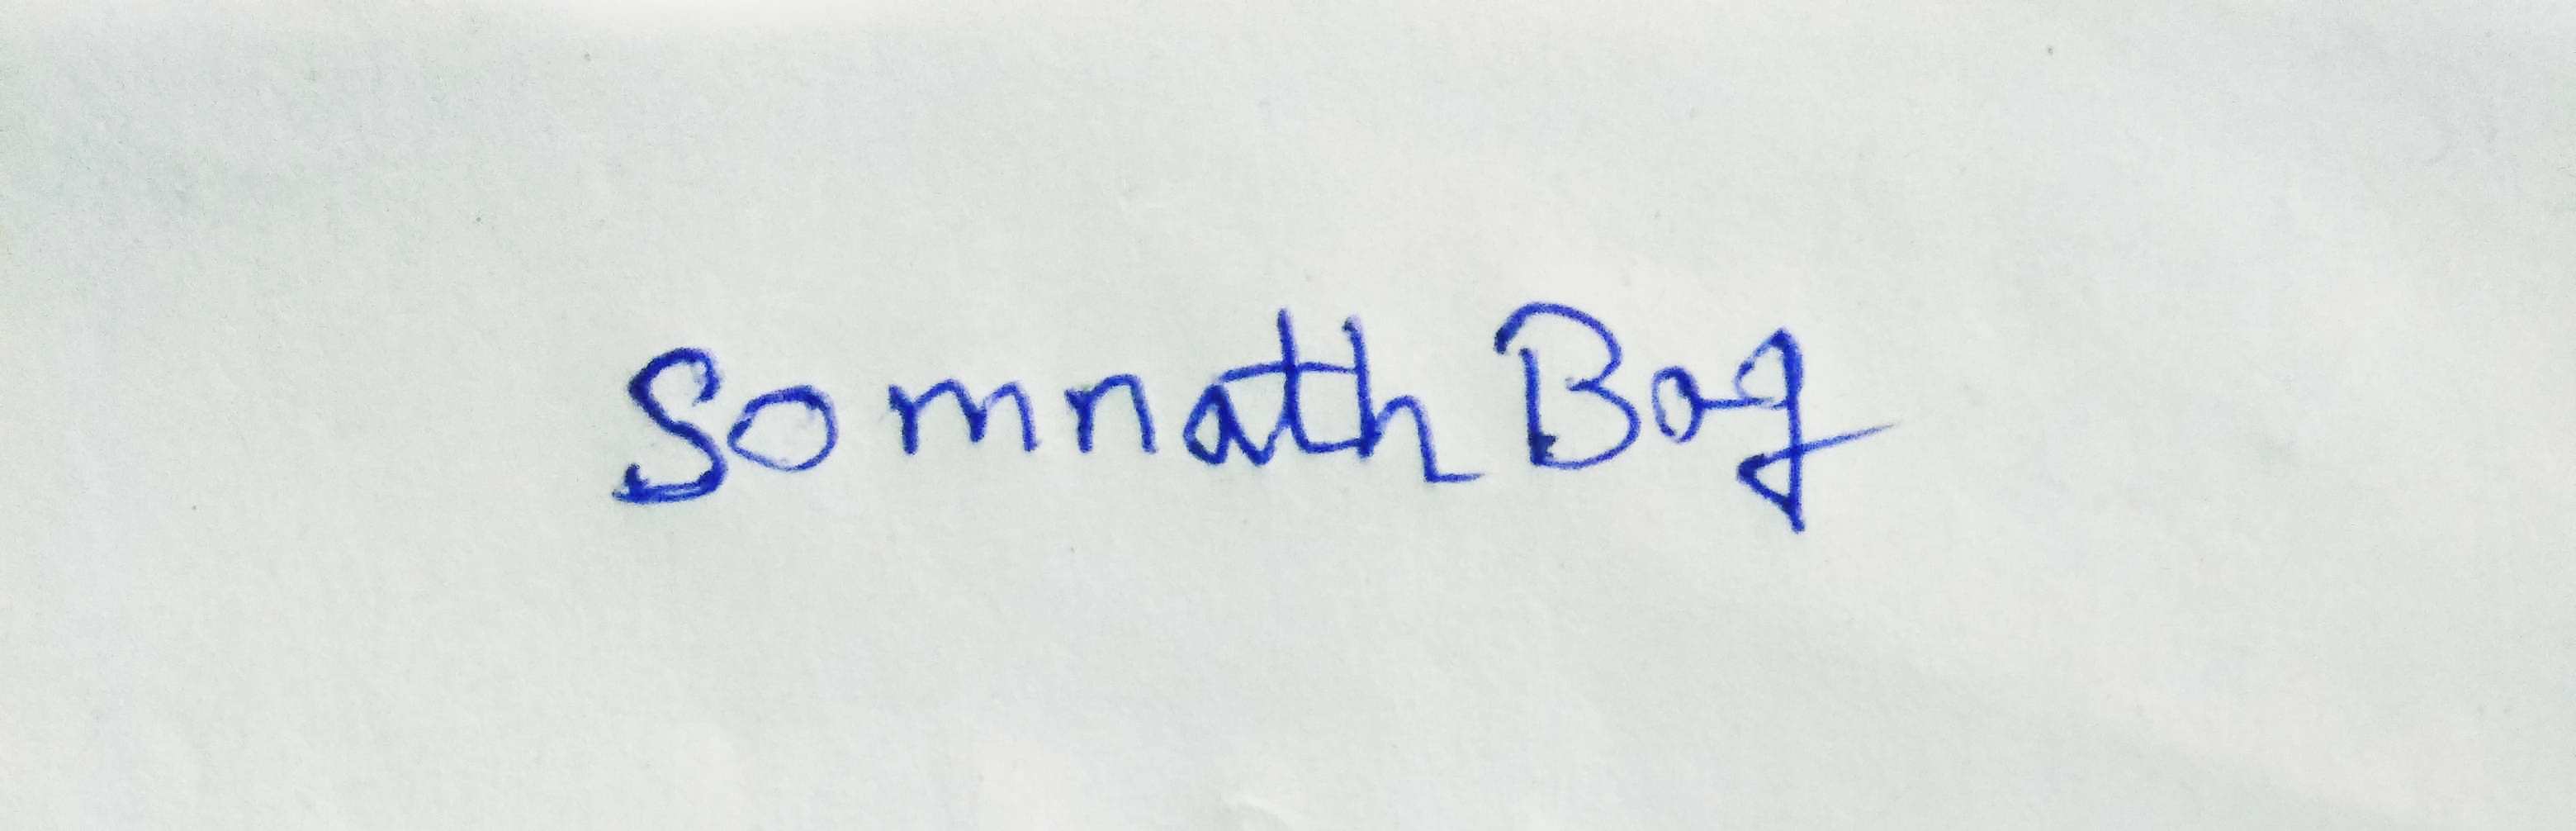 Somnath Bag